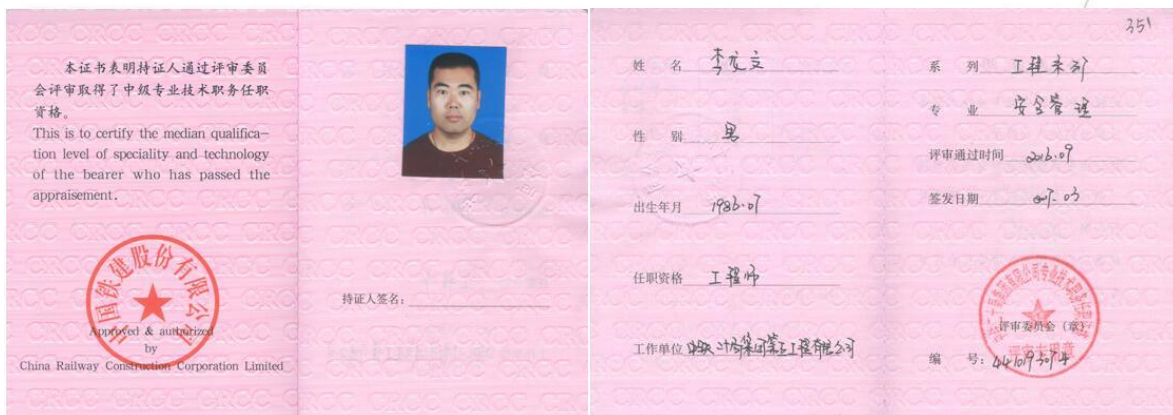 351
本证书表明持证人通过评审委员
会评审取得了中级专业技术职务任职
资格。
This is to certify the median qualifica-
tion level of speciality and technology
of the bearer who has passed the
appraisement.
中国铁建股份有限公司
Approved & authorized
by
China Railway Construction Corporation Limited
持证人签名:
姓 名
性 别 男
出生年月 1986.07
任职资格 工程师
工作单位
系 列 工程系列
专 业 安全管理
评审通过时间 2016.09
签发日期
评审委员会(章)
评审专用章
编 号:
CRCC